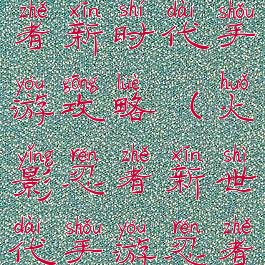 zhě xīn shí dài shǒu
者新时代手
yóu gōng lüè huǒ
游攻略（火
yǐng rěn zhě xīn shì
影忍者新世
dài shǒu yóu rěn zhě
代手游忍者